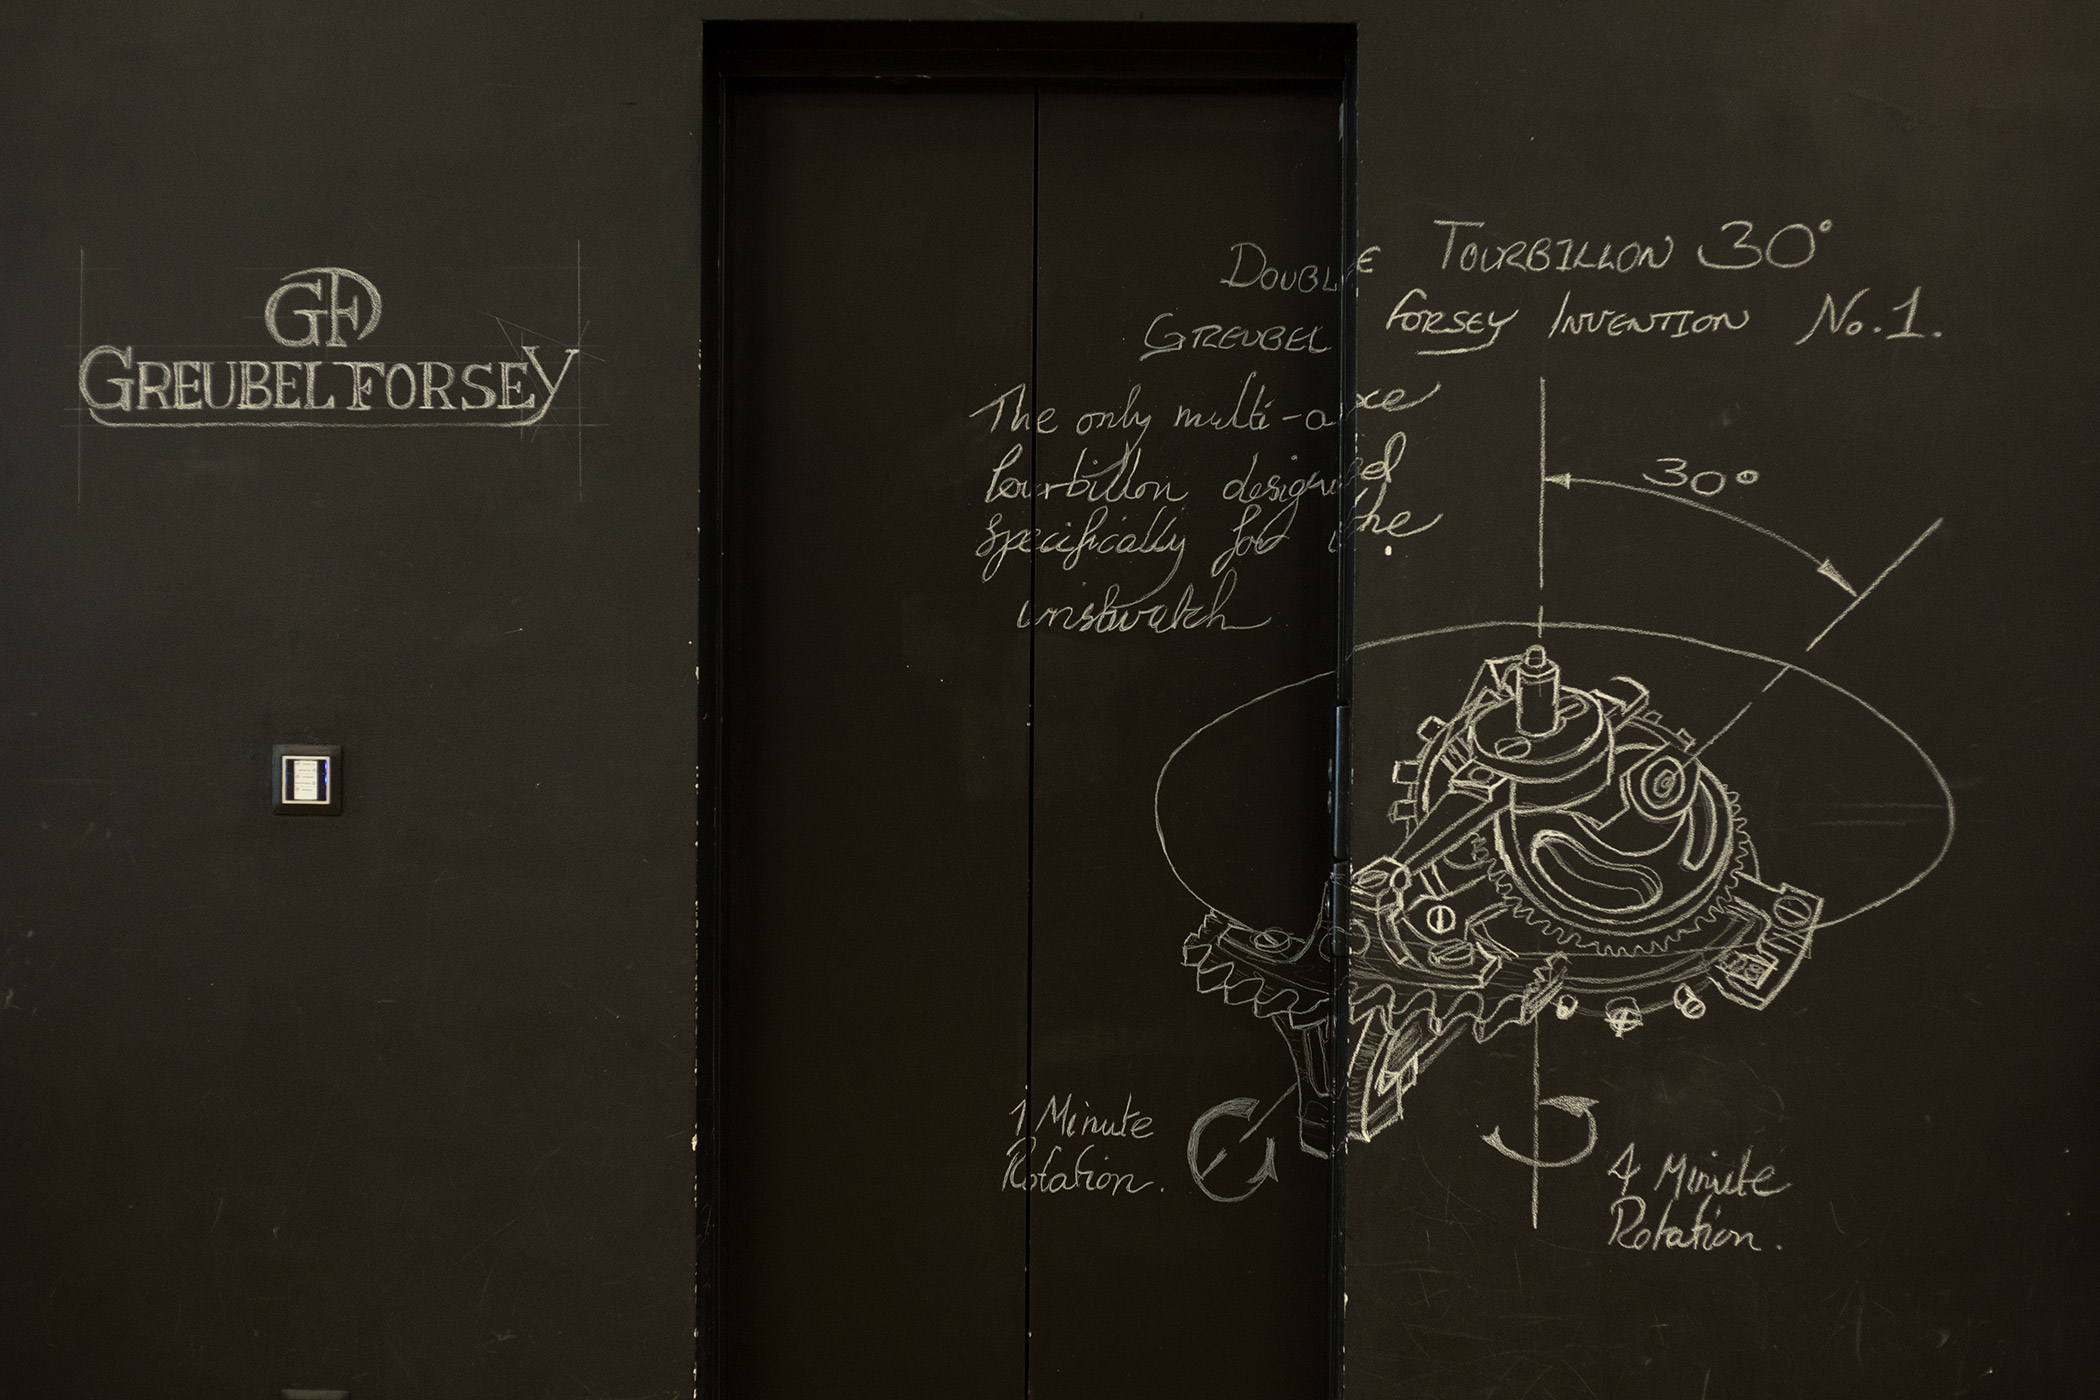 GF
GREUBEL FORSEY
DOUBLE TOURBILLON 30°
GREUBEL FORSEY INVENTION No.1.
The only multi-axe
tourbillon designed
specifically for the
wristwatch
30°
1 Minute
Rotation.
4 Minute
Rotation.